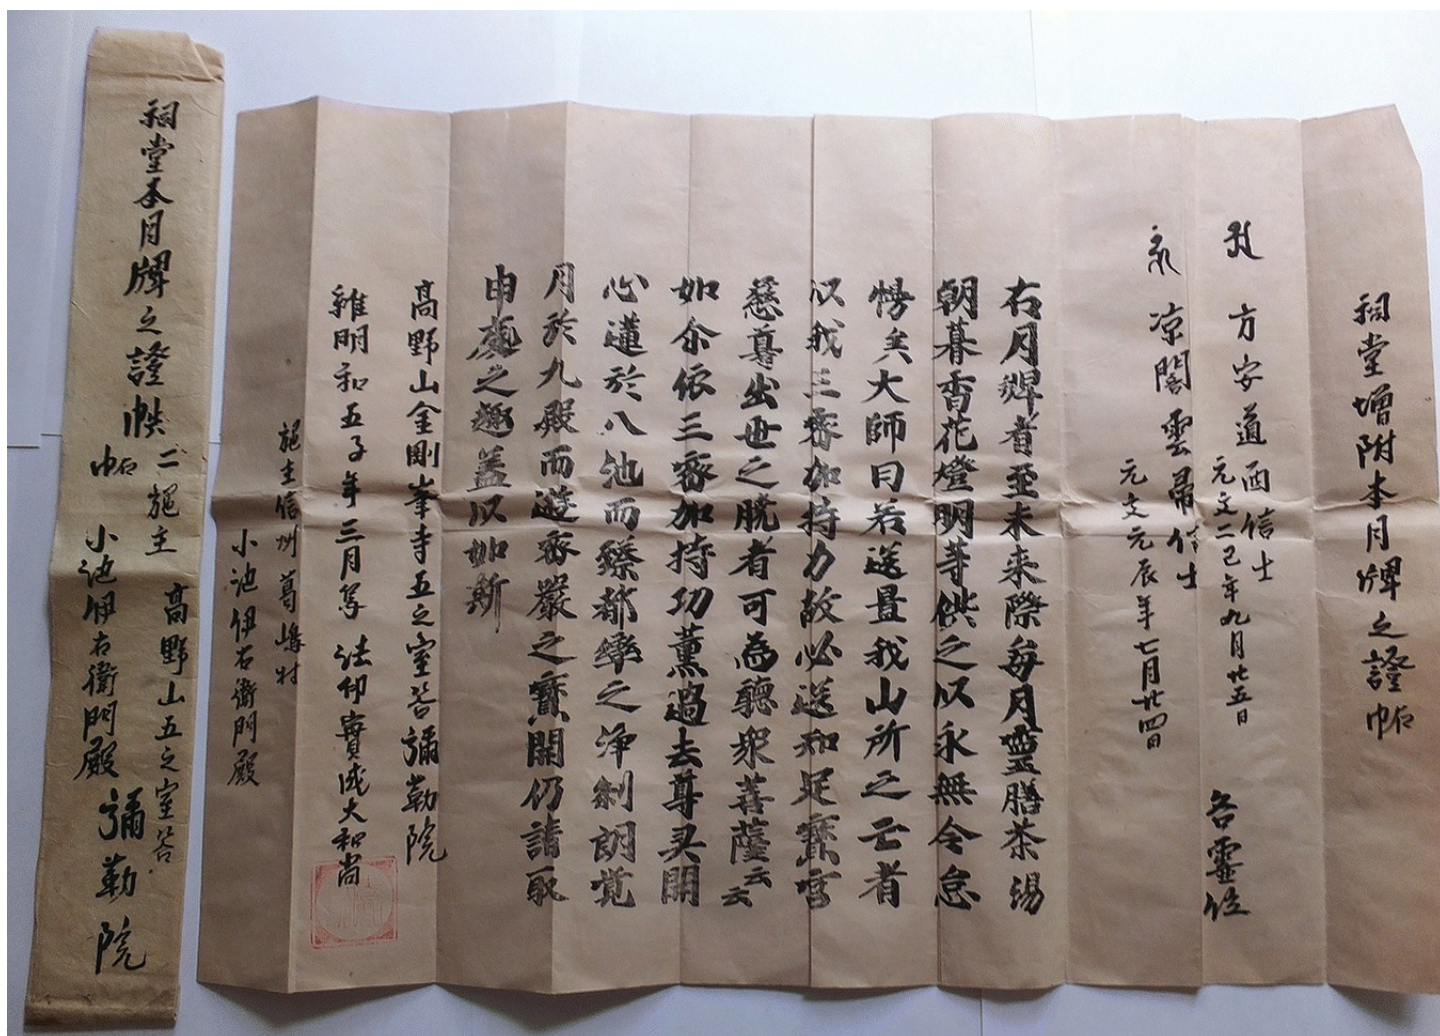 祠堂增附本月牌之證帖
方安道西信士
元文二巳年九月廿五日
凉閣雲帰信士
元文元辰年七月廿四日
各靈位
右月牌者至未来際每月靈膳茶湯
朝暮香花燈明等供之以永無令怠
慢矣大師曰若送置我山所之亡者
以我三密加持力故必送和足寳宮
慈尊出世之晚者可為聽衆菩薩云云
如尒依三密加持功薫過去尊灵開
心蓮於八池而
都率之淨刹朗覚
月於九殿而遊密嚴之寳開仍請取
申處之趣蓋以如斯
高野山金剛峯寺五之室谷彌勒院
維明和五子年三月
法印實
大和尚
施主信州葛嶋村
小池伊右衛門殿
祠堂本月牌之證帖
帖
施主
高野山五之室谷
小池伊右衛門殿
彌勒院